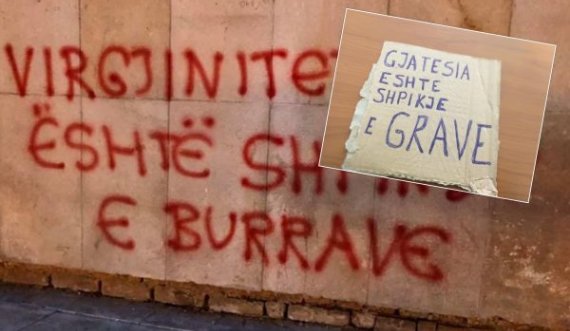 VIRGJINITE
ËSHTË
E BURRAVE
GJATESIA
ESHTE
SHPIKJE
E GRAVE